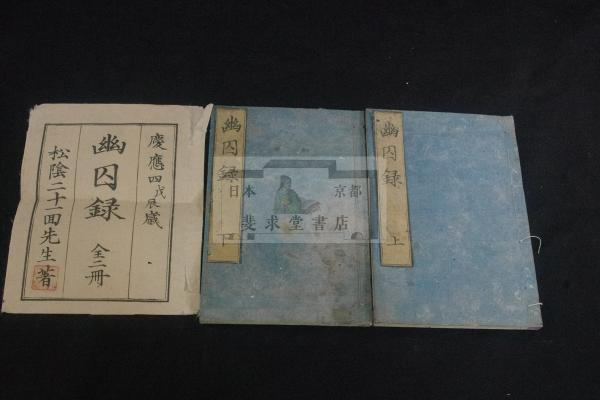 慶應四戊辰歳
幽囚録 全二冊
松陰二十一回先生著
幽囚録 下
幽囚録 上
日本 京都
斐求堂書店